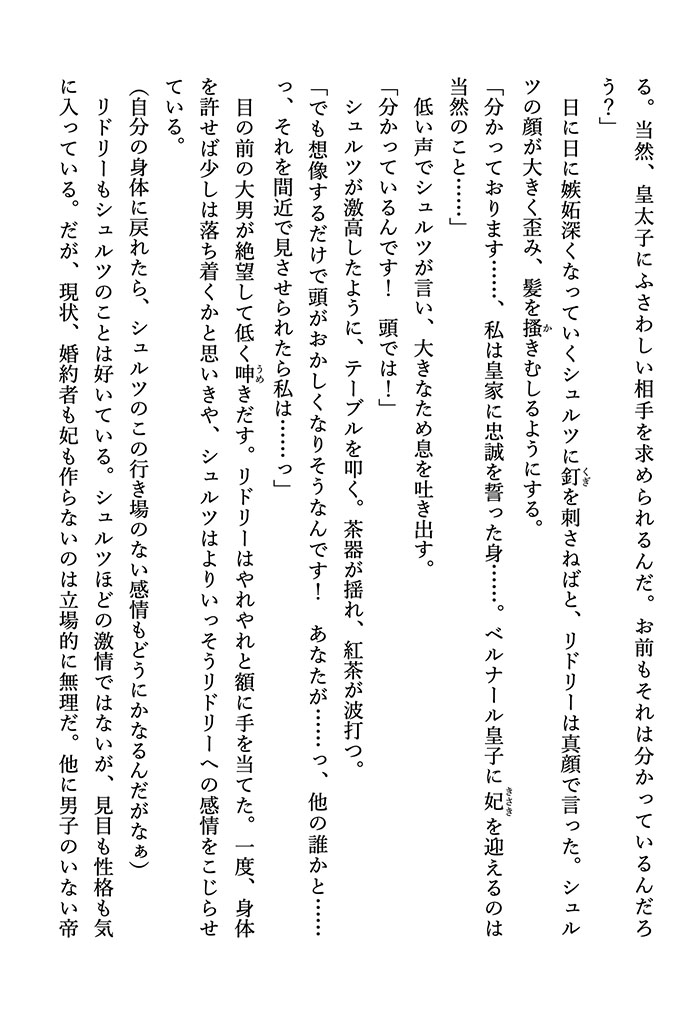 る。当然、皇太子にふさわしい相手を求められるんだ。お前もそれは分かっているんだろ
う？」
　日に日に嫉妬深くなっていくシュルツに釘を刺さねばと、リドリーは真顔で言った。シュル
ツの顔が大きく歪み、髪を掻きむしるようにする。
「分かっております……、私は皇家に忠誠を誓った身……。ベルナール皇子に妃を迎えるのは
当然のこと……」
　低い声でシュルツが言い、大きなため息を吐き出す。
「分かっているんです！　頭では！」
　シュルツが激高したように、テーブルを叩く。茶器が揺れ、紅茶が波打つ。
「でも想像するだけで頭がおかしくなりそうなんです！　あなたが……っ、他の誰かと……
っ、それを間近で見させられたら私は……っ」
　目の前の大男が絶望して低く呻きだす。リドリーはやれやれと額に手を当てた。一度、身体
を許せば少しは落ち着くかと思いきや、シュルツはよりいっそうリドリーへの感情をこじらせ
ている。
（自分の身体に戻れたら、シュルツのこの行き場のない感情もどうにかなるんだがなぁ）
　リドリーもシュルツのことは好いている。シュルツほどの激情ではないが、見目も性格も気
に入っている。だが、現状、婚約者も妃も作らないのは立場的に無理だ。他に男子のいない帝